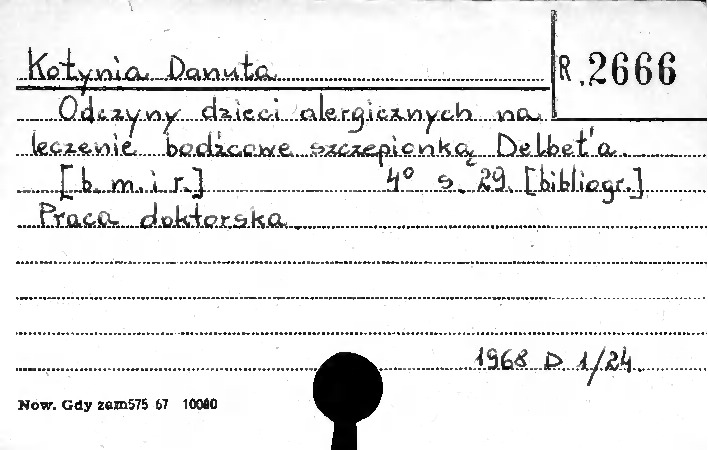 Kotynia Danuta
R. 2666
Odczyny dzieci alergicznych na
leczenie bodźcowe szczepionką Delbet'a.
[b. m. i r.] 4° s. 29. [bibliogr.]
Praca doktorska
1968 D 1/24
Now. Gdy zam 575 67 10000